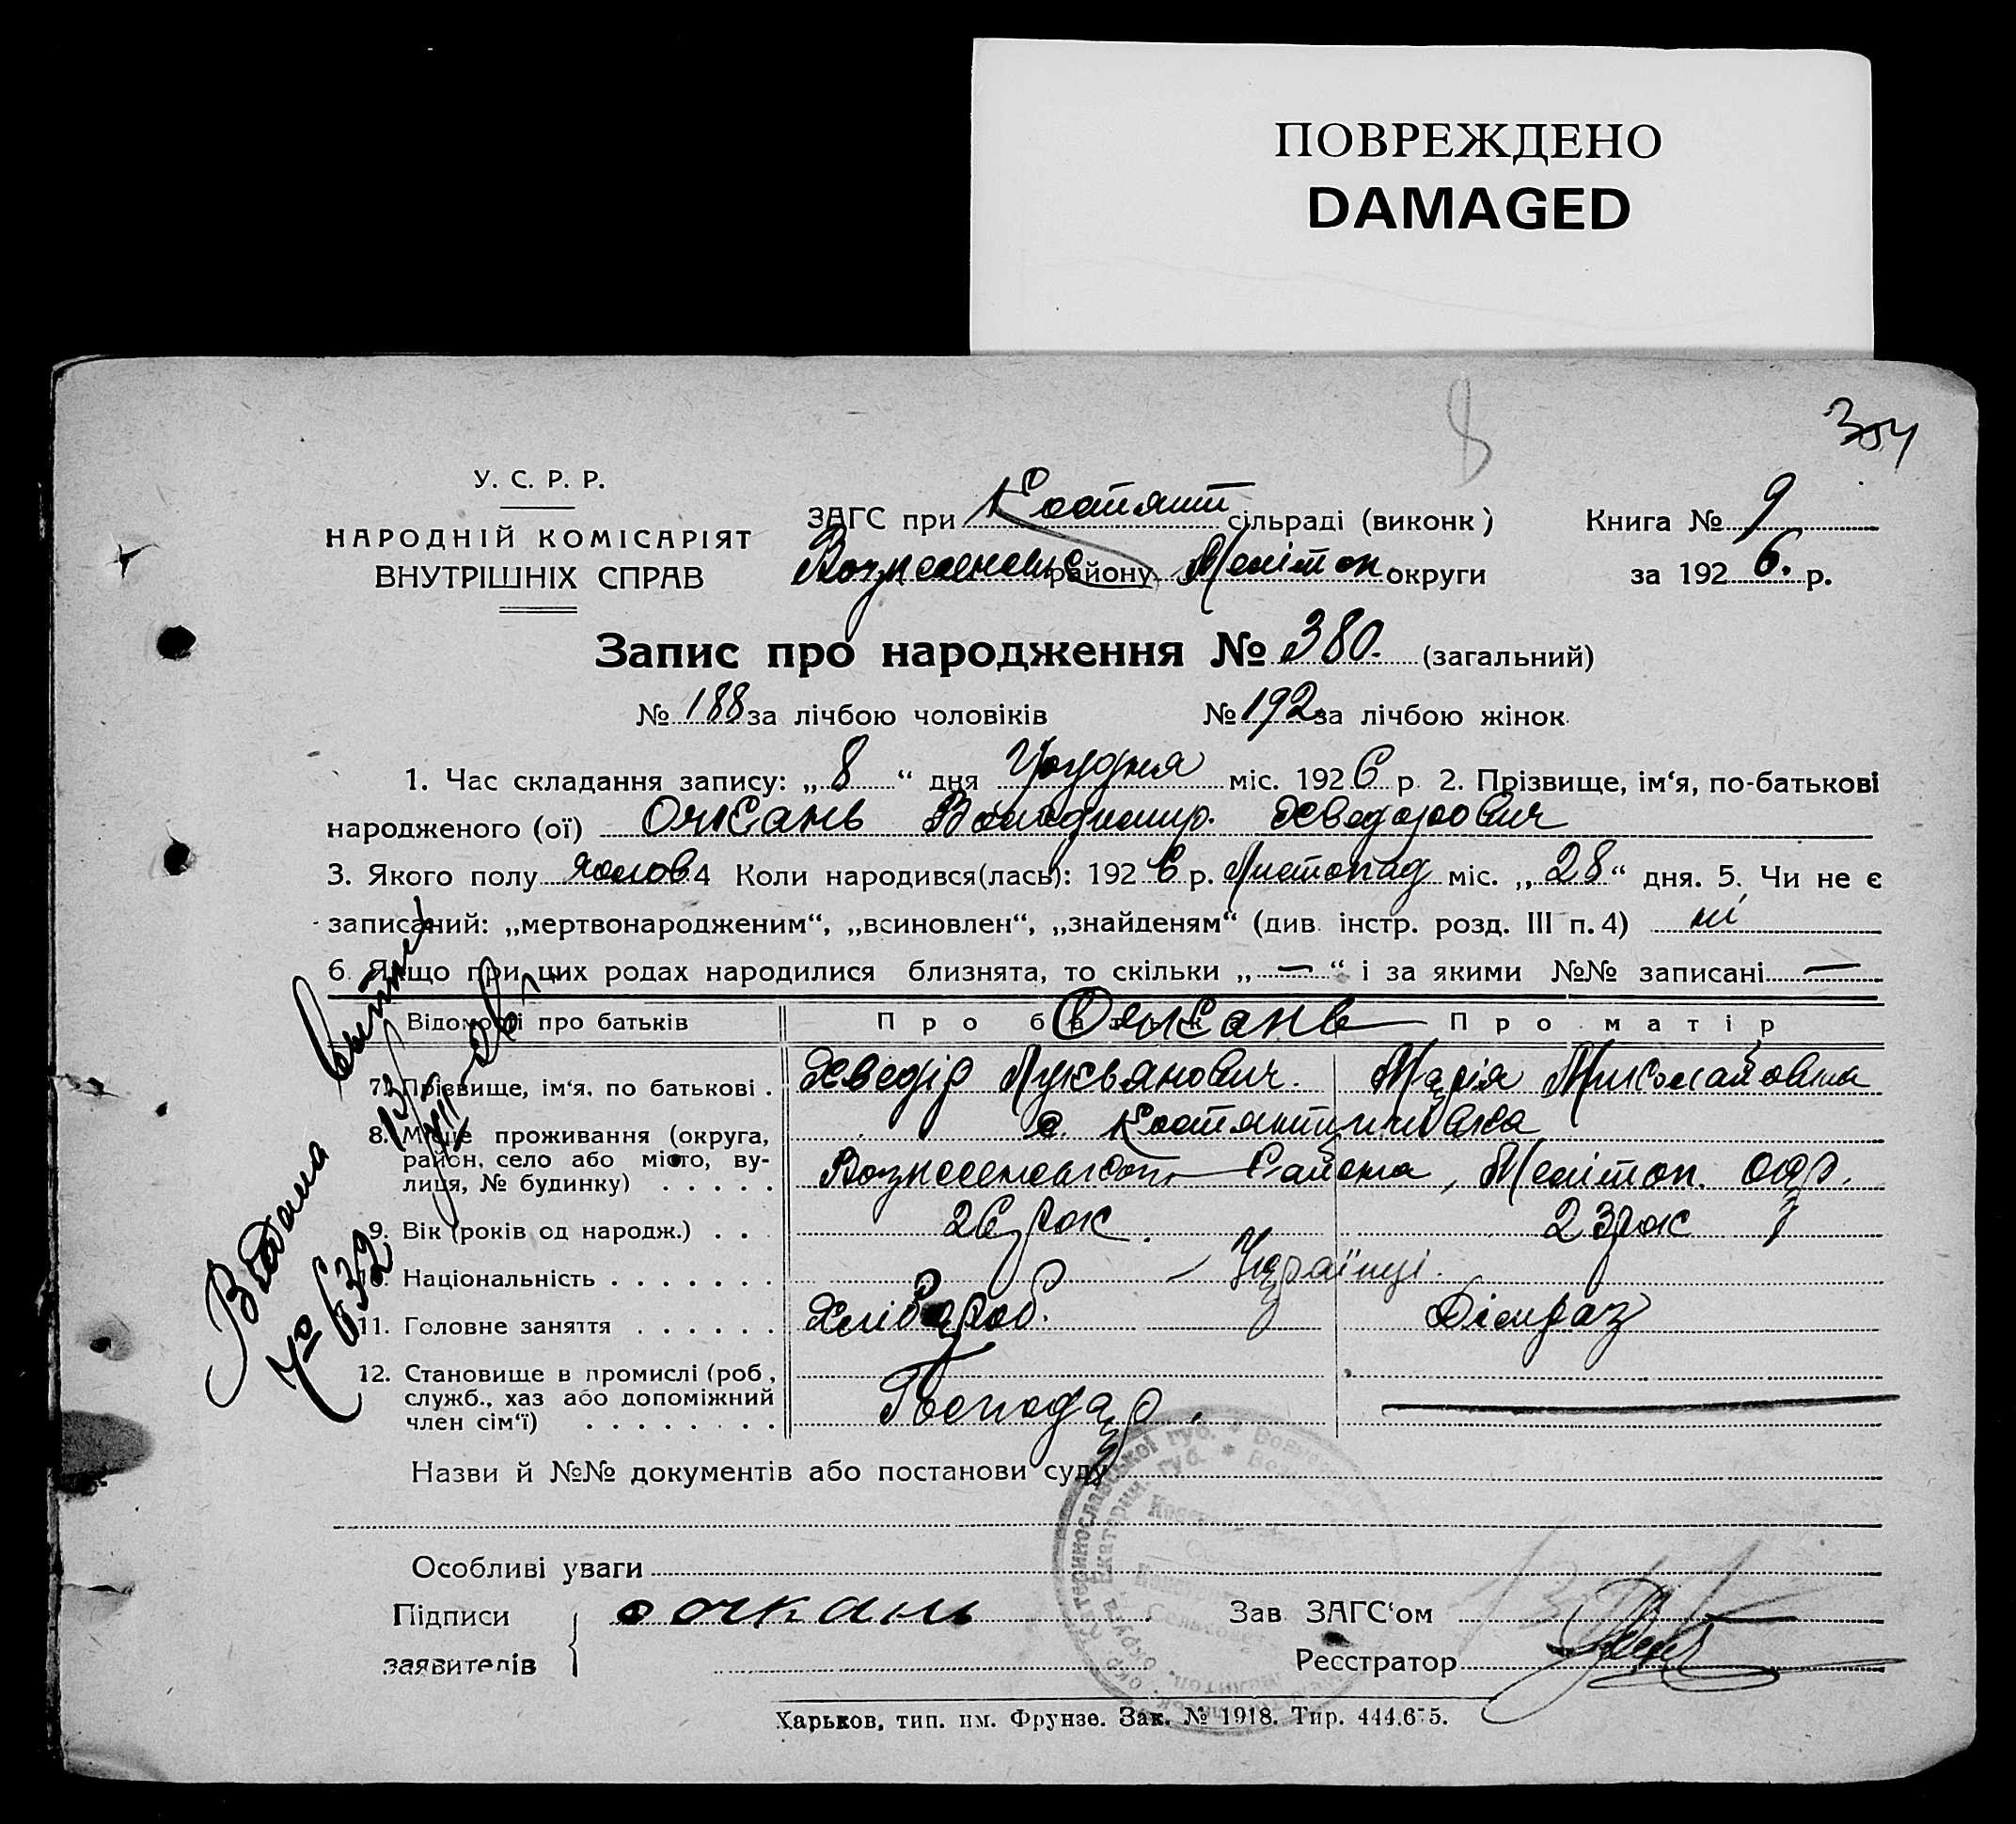 ПОВРЕЖДЕНО
DAMAGED
8
354
У. С. Р. Р.
НАРОДНІЙ КОМІСАРІЯТ
ВНУТРІШНІХ СПРАВ
ЗАГС при Костянт сільраді (виконк) Книга № 9
Вознесенськ району Меліт оп. округи за 1926. р.
Запис про народження № 380. (загальний)
№ 188 за лічбою чоловіків № 192 за лічбою жінок
1. Час складання запису: „8“ дня Грудня міс. 1926 р. 2. Прізвище, ім‘я, по-батькові
народженого (ої) Очкань Володимир. Хведорович
3. Якого полу чолов 4 Коли народився(лась): 1926 р. Листопад міс. „28“ дня. 5. Чи не є
записаний: „мертвонародженим“, „всиновлен“, „знайденям“ (див. інстр. розд. III п. 4) ні
6. Якщо при цих родах народилися близнята, то скільки „—“ і за якими №№ записані —
Відомості про батьків Про батька Очкань Про матір
7. Прізвище, ім‘я, по батькові . Хведір Лукьянович. Марія Миколайовна
8. Місце проживання (округа, с. Костянтинивка
район, село або місто, ву-
лиця, № будинку) . . . . . Вознесенського района, Меліт оп. окр.
9. Вік (років од народж.) . . 26 рок 23 рок
10. Національність . . . . . . . Українці.
11. Головне заняття . . . . . . Хлібороб.
12. Становище в промислі (роб,
служб., хаз або допоміжний
член сім‘ї) . . . . . . . . Господар.
Назви й №№ документів або постанови суду
Особливі уваги
Підписи очкань Зав ЗАГС‘ом
заявителів Реєстратор
Харьков, тип. им. Фрунзе. Зак. № 1918. Тир. 444.675.
Видана витяг
№ 632 13/XII-26 р.
Катеринославської губ.
Екатерин. губ.